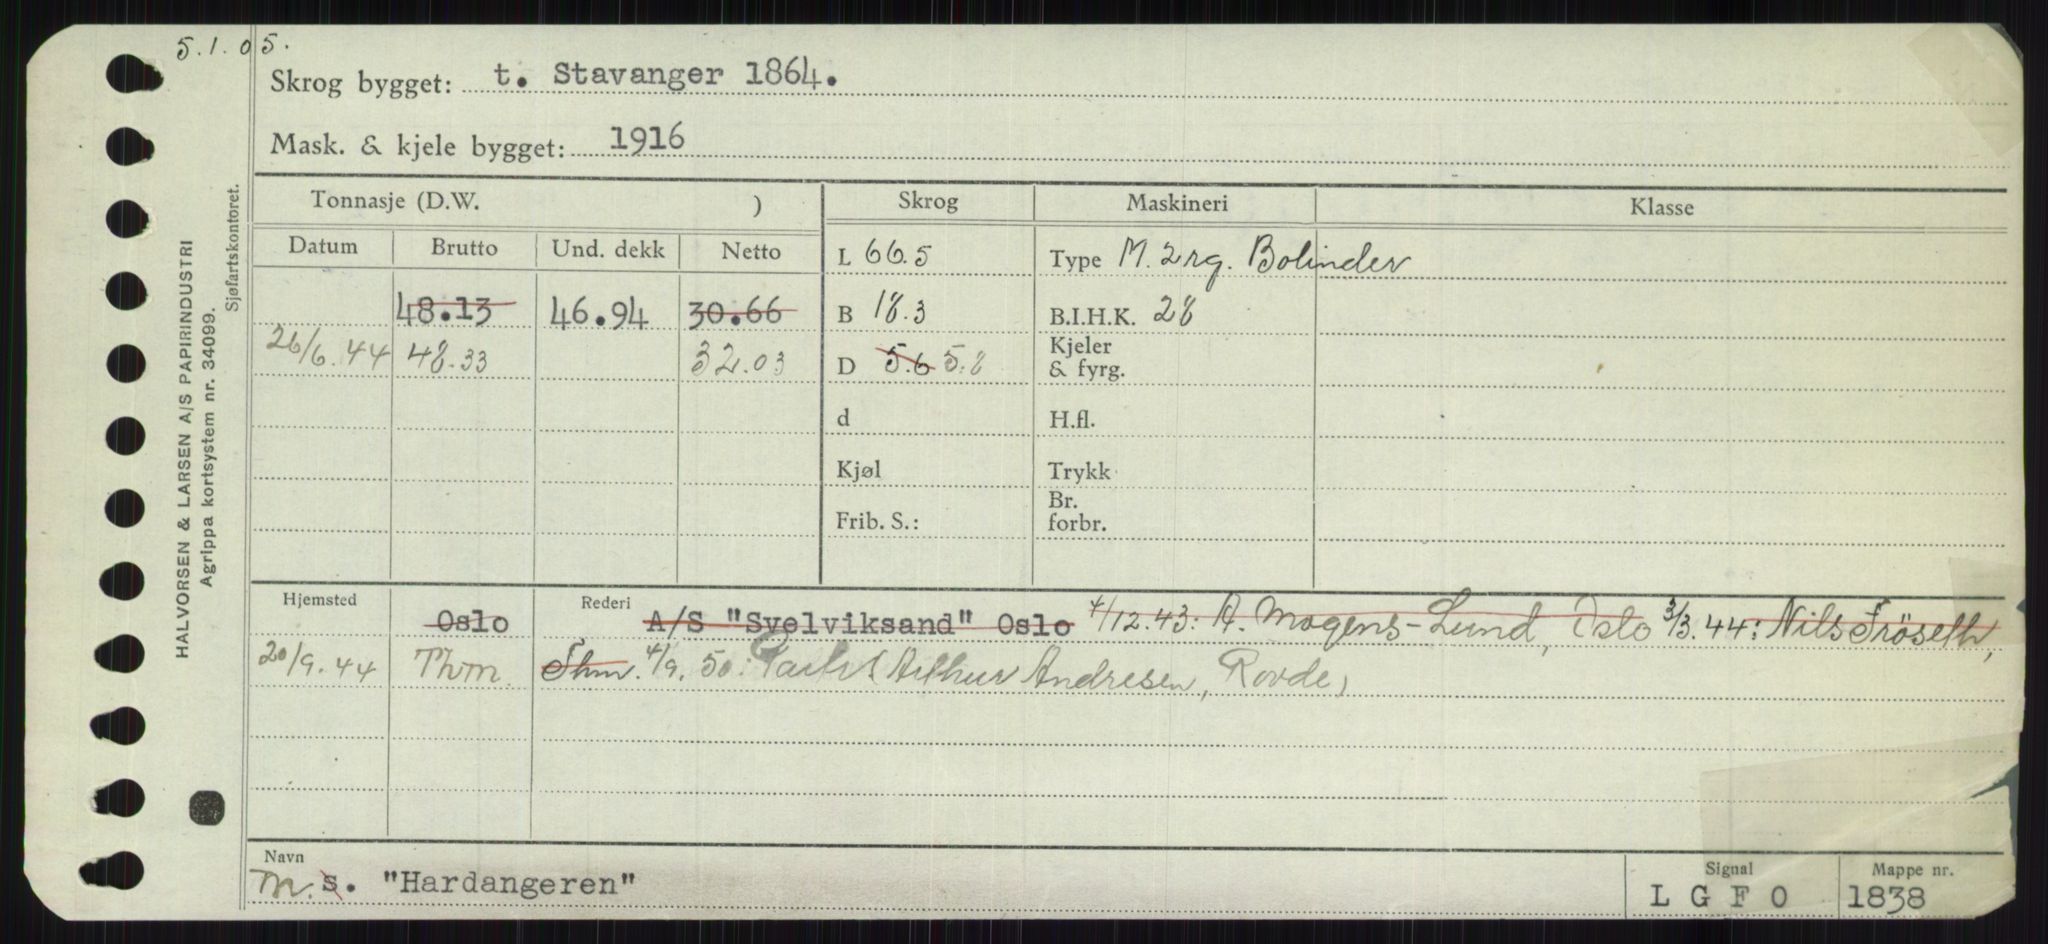 5.1.05.
Skrog bygget: t. Stavanger 1864.
Mask. & kjele bygget: 1916
Tonnasje (D.W. ) Skrog Maskineri Klasse
Datum Brutto Und. dekk Netto
L 66.5 Type M. 2 rg. Bolinder
48.13 46.94 30.66 B 18.3 B.I.H.K. 28
26/6.44 48.33 32.03 D 5.6 5.8 Kjeler
& fyrg.
d H.fl.
Kjøl Trykk
Br.
Frib. S.: forbr.
Hjemsted Rederi
Oslo A/S "Svelviksand" Oslo 4/12.43: A. Mogens-Lund, Oslo 3/3.44: Nils Fröseth,
20/9.44 Thm. Thm. 4/9.50: Arthur Andresen, Rovde,
Navn Signal Mappe nr.
m. s. "Hardangeren" L G F O 1838
HALVORSEN & LARSEN A/S PAPIRINDUSTRI
Agrippa kortsystem nr. 34099.
Sjøfartskontoret.